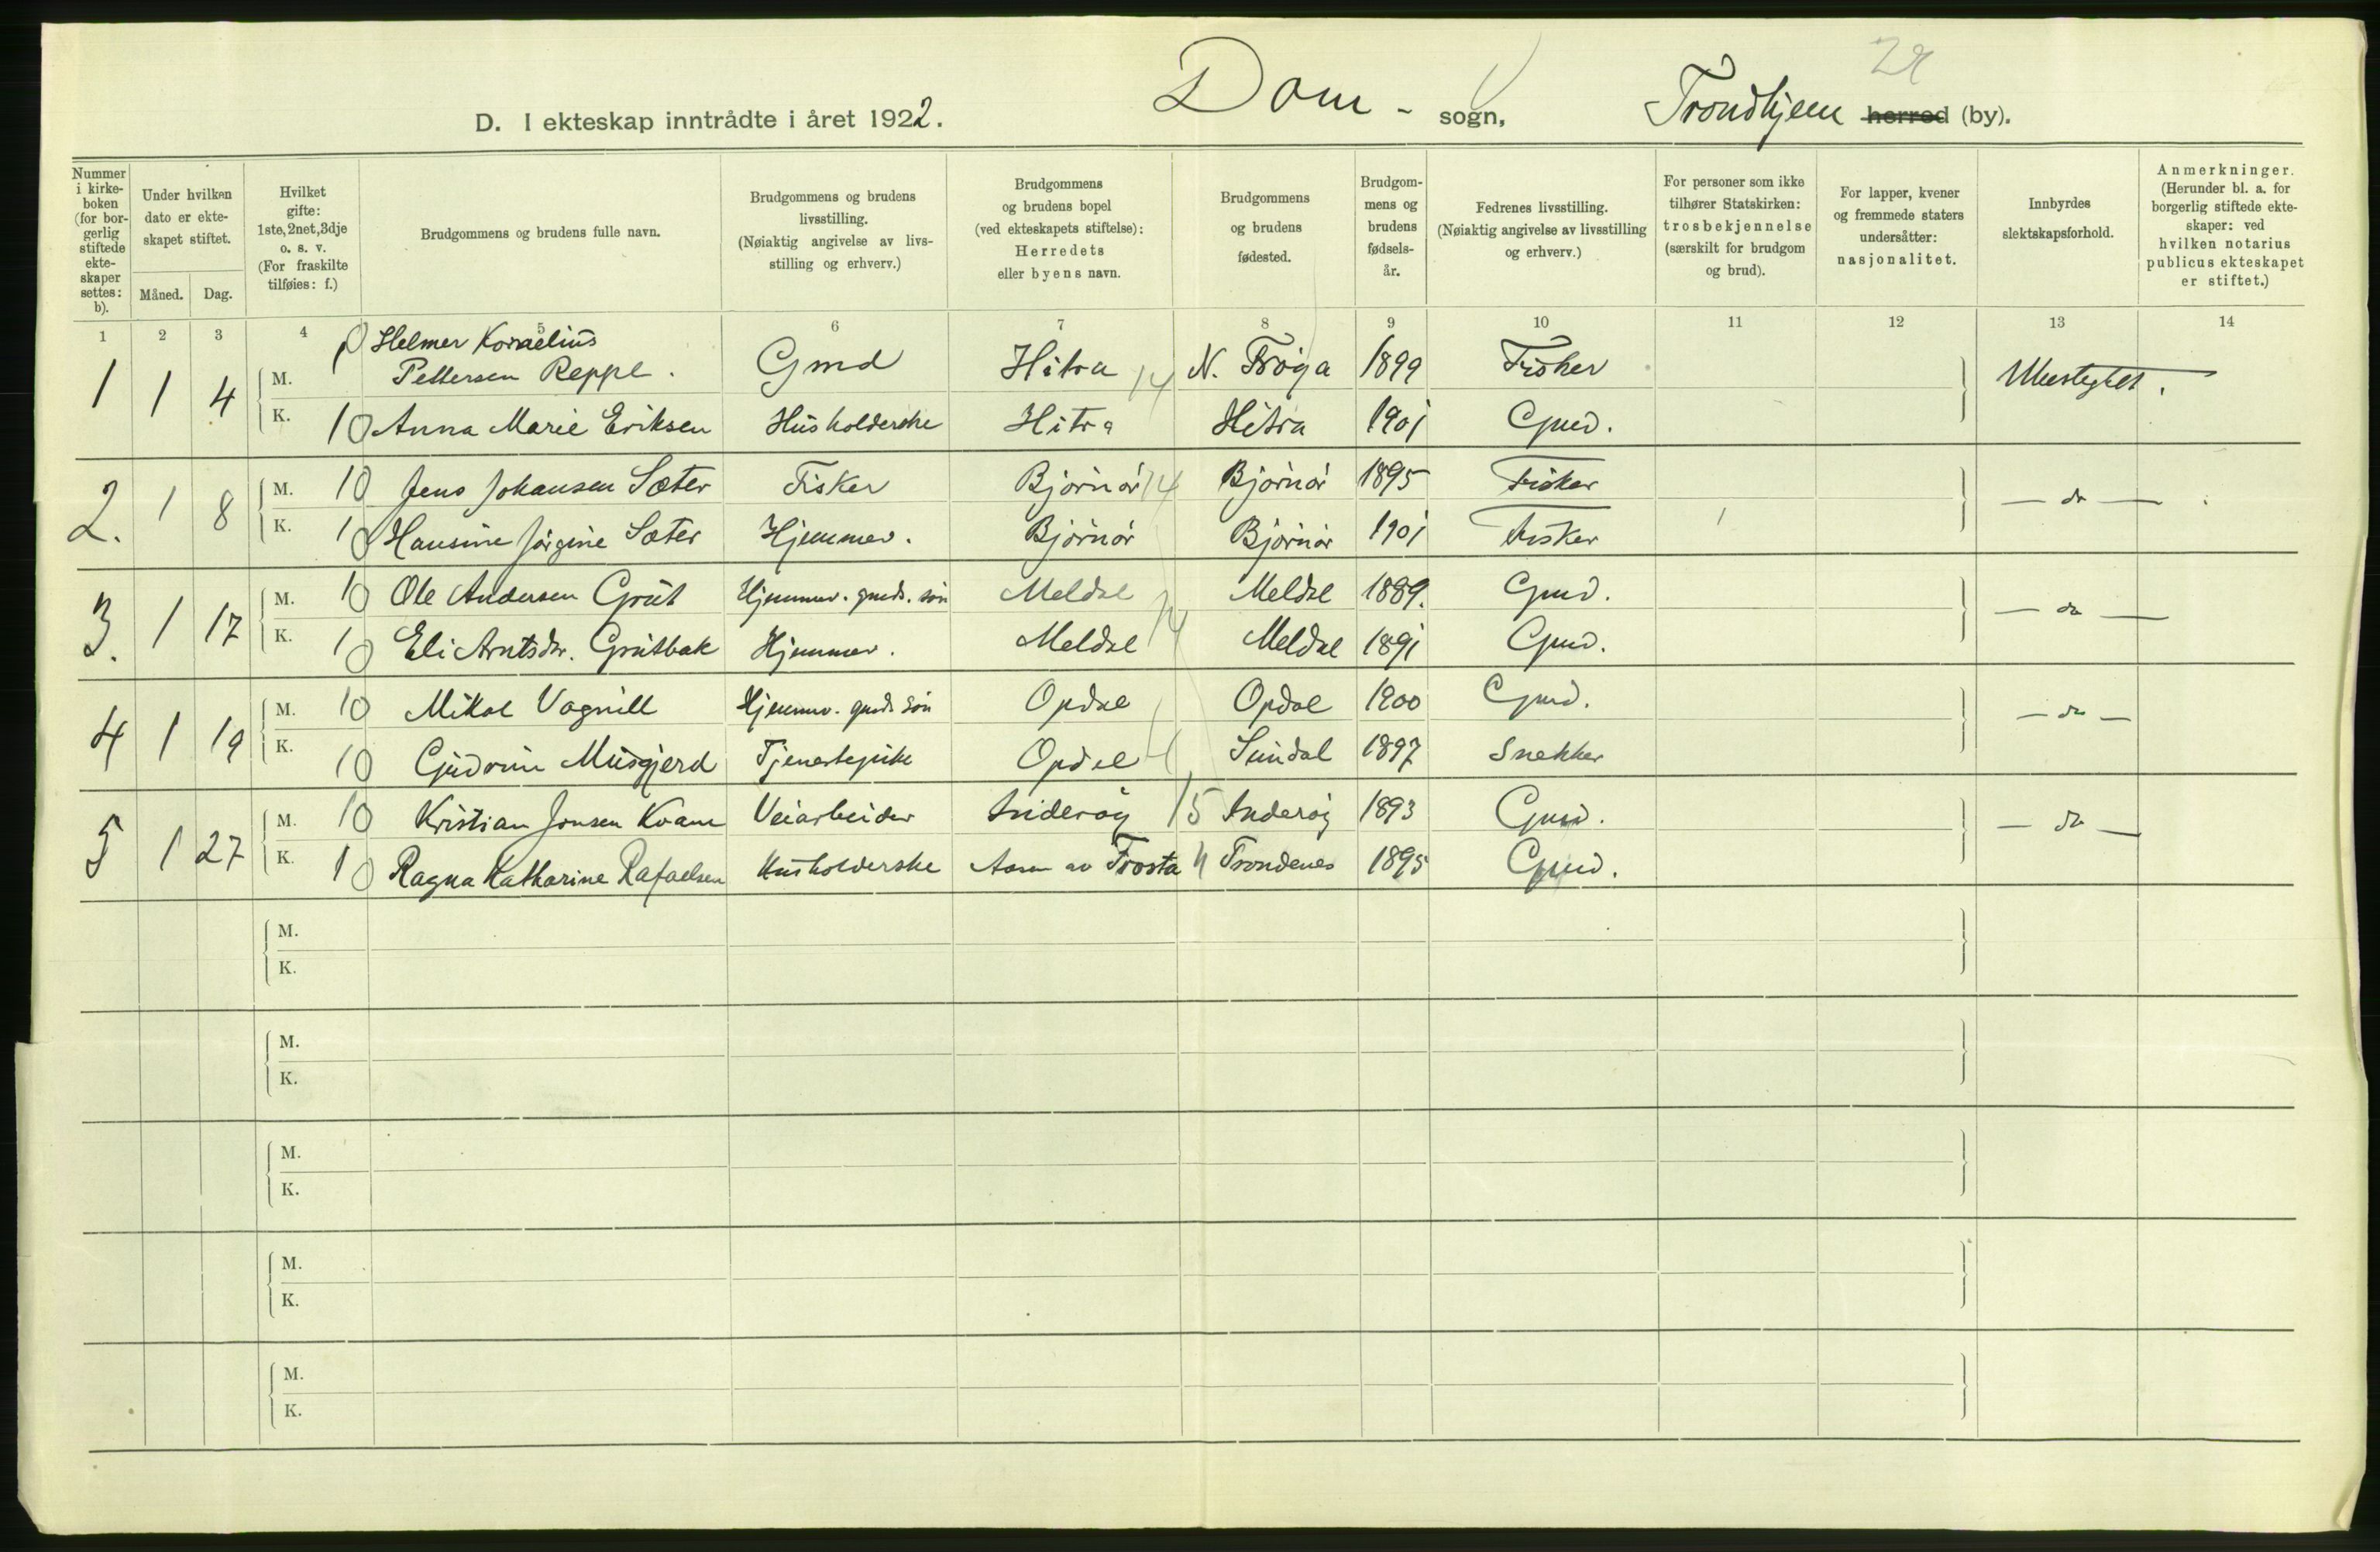 D. I ekteskap inntrådte i året 1922. Dom - sogn, Trondhjem herred (by).
Nummer i kirkeboken (for borgerlig stiftede ekteskaper settes: b). Under hvilken dato er ekteskapet stiftet. Måned. Dag. Hvilket gifte: 1ste, 2net, 3dje o. s. v. (For fraskilte tilføies: f.) Brudgommens og brudens fulle navn. Brudgommens og brudens livsstilling. (Nøiaktig angivelse av livsstilling og erhverv.) Brudgommens og brudens bopel (ved ekteskapets stiftelse): Herredets eller byens navn. Brudgommens og brudens fødested. Brudgommens og brudens fødselsår. Fedrenes livsstilling. (Nøiaktig angivelse av livsstilling og erhverv.) For personer som ikke tilhører Statskirken: trosbekjennelse (særskilt for brudgom og brud). For lapper, kvener og fremmede staters undersåtter: nasjonalitet. Innbyrdes slektskapsforhold. Anmerkninger. (Herunder bl. a. for borgerlig stiftede ekteskaper: ved hvilken notarius publicus ekteskapet er stiftet.)
1 2 3 4 5 6 7 8 9 10 11 12 13 14
1 1 4 M. Helmer Kornelius Pettersen Reppe. Gmd Hitra 14 N. Fröya 1899 Fisker Ubeslegtet.
K. 10 Anna Marie Eriksen Husholderske Hitra Hitra 1901 Gmd.
2. 1 8 M. 10 Jens Johansen Sæter Fisker Bjørnør 14 Bjørnør 1895 Fisker — do —
K. 10 Hansine Jörgine Sæter Hjemmev. Bjørnør Bjørnør 1901 Fisker
3. 1 17 M. 10 Ole Andersen Grut Hjemmev. gmds. sön Meldal 14 Meldal 1889. Gmd. — do —
K. 10 Eli Arntsdr. Grutbak Hjemmev. Meldal Meldal 1891 Gmd.
4 1 19 M. 10 Mikal Vognill Hjemmev. gmds sön Opdal Opdal 1900 Gmd. — do —
K. 10 Gudrun Musgjerd Tjenestepike Opdal Sundal 1897 Snekker
5 1 27 M. 10 Kristian Jonsen Kvam Veiarbeider Inderöy 15 Inderöy 1893 Gmd. — do —
K. 10 Ragna Katharine Rafaelsen Husholderske Aasen av Frosta Trondenes 1895 Gmd.
M.
K.
M.
K.
M.
K.
M.
K.
M.
K.